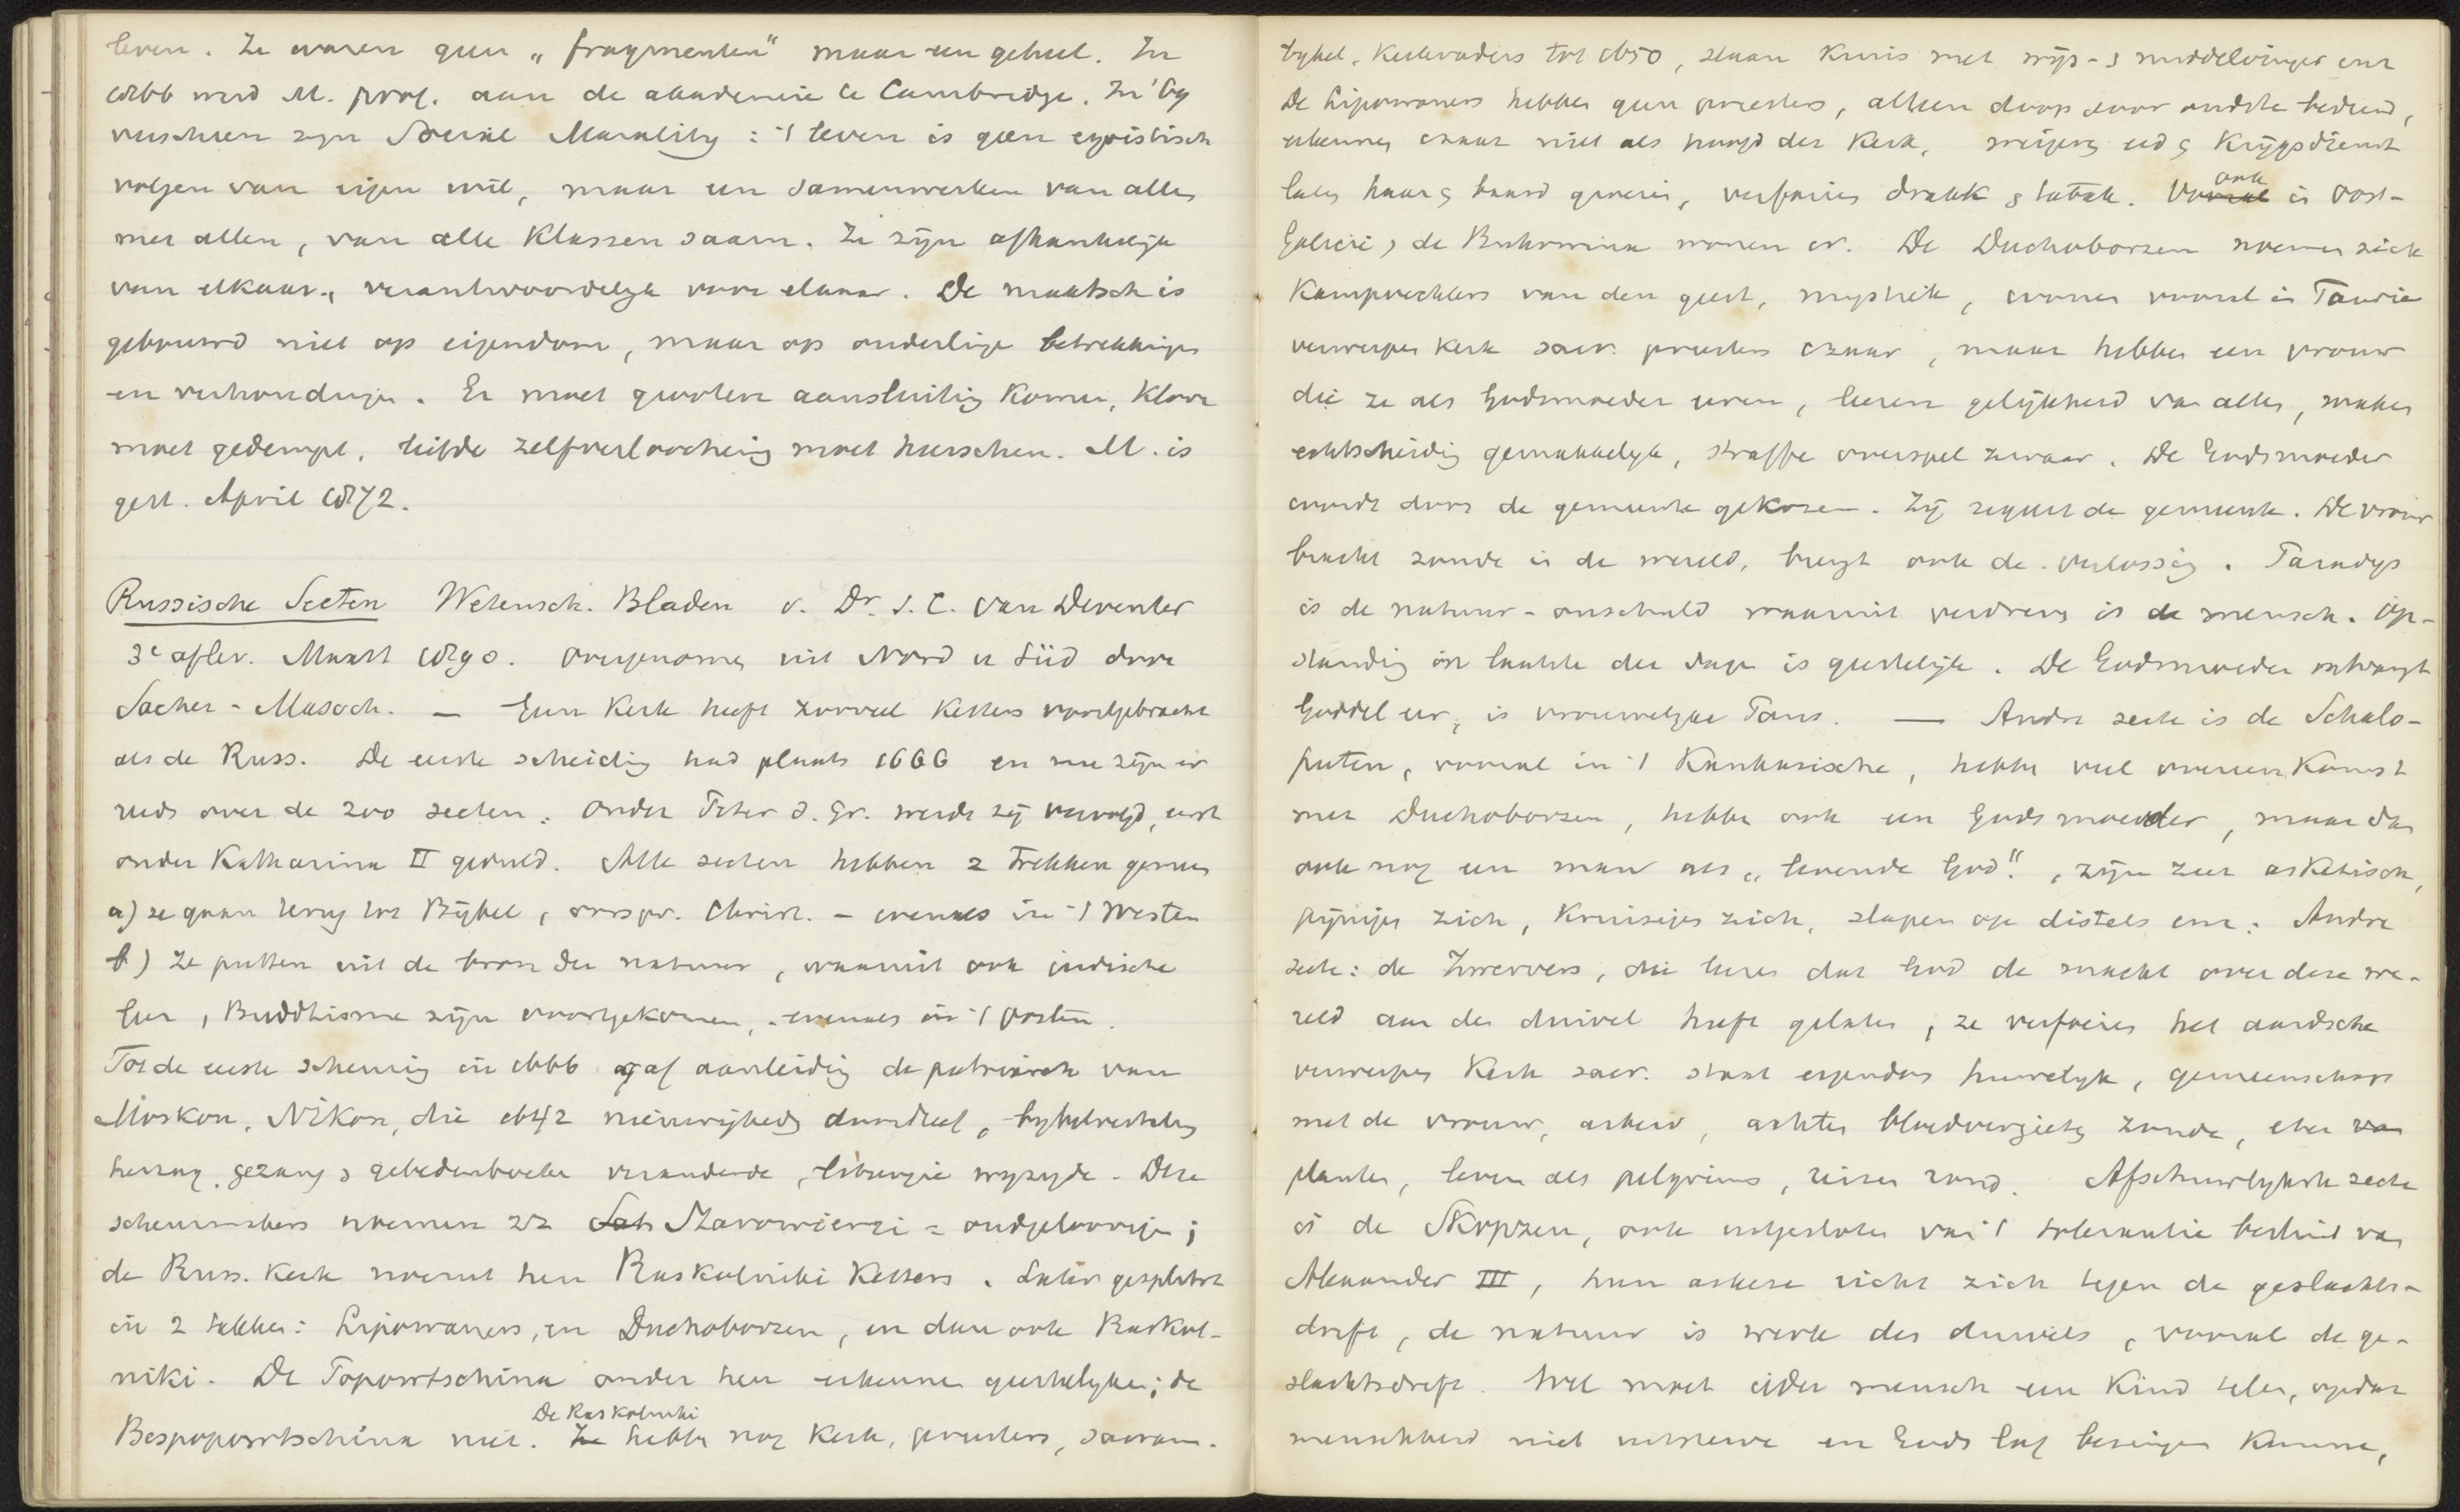 leven. Ze waren geen „fragmenten" maar een geheel. In
1866 werd M. prof. aan de akademie te Cambridge. In '69
verscheen zijn Social Morality: 't leven is geen egoistisch
volgen van eigen wil, maar een samenwerken van allen
met allen, van alle klassen saam. Ze zijn afhankelijk
van elkaar, verantwoordelijk voor elkaar. De maatsch is
gebouwd niet op eigendom, maar op onderlinge betrekkingen
en verhoudingen. Er moet grootere aansluiting komen, kloof
moet gedempt, liefde zelfverloochening moet heerschen. M. is
gest. April 1872.
Russische Secten Wetensch. Bladen v. Dr. S. C. van Deventer
3e aflev. Maart 1890. overgenomen uit Nord u Süd door
Sacher-Masoch. — Geen Kerk heeft zooveel Ketters voortgebracht
als de Russ. De eerste scheiding had plaats 1666 en nu zijn er
reeds over de 200 secten. Onder Peter d. Gr. werden zij vervolgd, eerst
onder Katharina II geduld. Alle secten hebben 2 trekken gemeen
a) ze gaan terug tot Bijbel, oorspr. Christ. - evenals in 't Westen
b) Ze putten uit de bron der natuur, waaruit ook indische
leer, Buddhisme zijn voortgekomen, - evenals in 't Oosten.
Tot de eerste scheuring in 1666 gaf aanleiding de patriarch van
Moskou, Nikon, die 1642 nieuwigheden doordreef, bijbelvertaling
herzag, gezang & gebedenboeken veranderde, liturgie wijzigde. Deze
scheurmakers noemen zich Starowierzi = oudgeloovigen;
de Russ. Kerk noemt hen Raskolniki Ketters. Later gesplitst
in 2 takken: Lipowaners, en Duchoborzen, en dan ook Raskol-
niki. De Popowtschina onder hen erkennen geestelijken; de
Bespopowtschina niet. De Raskolniki hebben nog Kerk, priesters, sacram.
bijbel, Kerkvaders tot 1650, slaan kruis met wijs- & middelvinger enz
De Lipowaners hebben geen priesters, alleen doop door oudste bediend,
erkennen czaar niet als hoofd der Kerk, weigeren eed & Krijgsdienst
laten haar & baard groeien, verfoeien drank & tabak. ook in Oost-
Galicië & de Bukowina wonen er. De Duchoborzen noemen zich
Kampvechters van den geest, mystiek, wonen vooral in Taurie
verwerpen Kerk sacr. priesters czaar, maar hebben een vrouw
die ze als Godsmoeder eeren, leeren gelijkheid van allen, maken
echtscheiding gemakkelijk, straffen overspel zwaar. De Godsmoeder
wordt door de gemeente gekozen. Zij regeert de gemeente. De vrouw
bracht zonde in de wereld, brengt ook de verlossing. Paradijs
is de natuur-onschuld waaruit verdreven is de mensch. Op-
standing in laatste der dagen is geestelijk. De Godsmoeder ontvangt
Goddel eer, is vrouwelijke Paus. — Andre secte is de Schalo-
puten, vooral in 't Kaukasische, hebben veel overeenkomst
met Duchoborzen, hebben ook een Godsmoeder, maar dan
ook nog een man als „levende God", zijn zeer asketisch,
pijnigen zich, kruisigen zich, slapen op distels enz. Andre
secte: de Zwervers, die leeren dat God de macht over deze we-
reld aan den duivel heeft gelaten, ze verfoeien het aardsche
verwerpen Kerk sacr. staat eigendom huwelijk, gemeenschap
met de vrouw, arbeid, achten bloedvergieten zonde, eten
planten, leven als pelgrims, reizen rond. Afschuwelijkste secte
is de Skopzen, ook uitgesloten van 't tolerantie besluit van
Alexander III, hun askese richt zich tegen de geslachts-
drift, de natuur is werk des duivels, vooral de ge-
slachtsdrift. Wel moet ieder mensch een kind telen, opdat
menschheid niet uitsterve en Gods lof bezingen kunne,